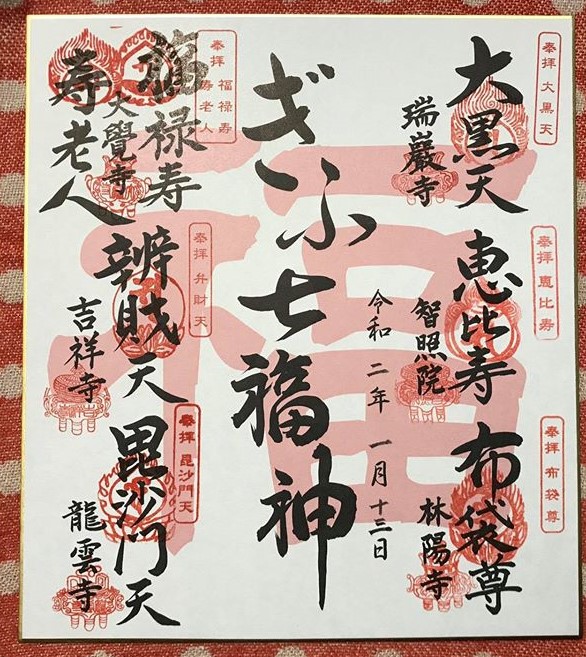 奉拝 大黒天
大黒天
瑞巖寺
奉拝 恵比寿
恵比寿
智照院
奉拝 布袋尊
布袋尊
林陽寺
ぎふ七福神
令和二年 一月十三日
奉拝 福禄寿
寿老人
福禄寿
大覺寺
寿老人
奉拝 弁財天
辨財天
吉祥寺
奉拝 毘沙門天
毘沙門天
龍雲寺
福